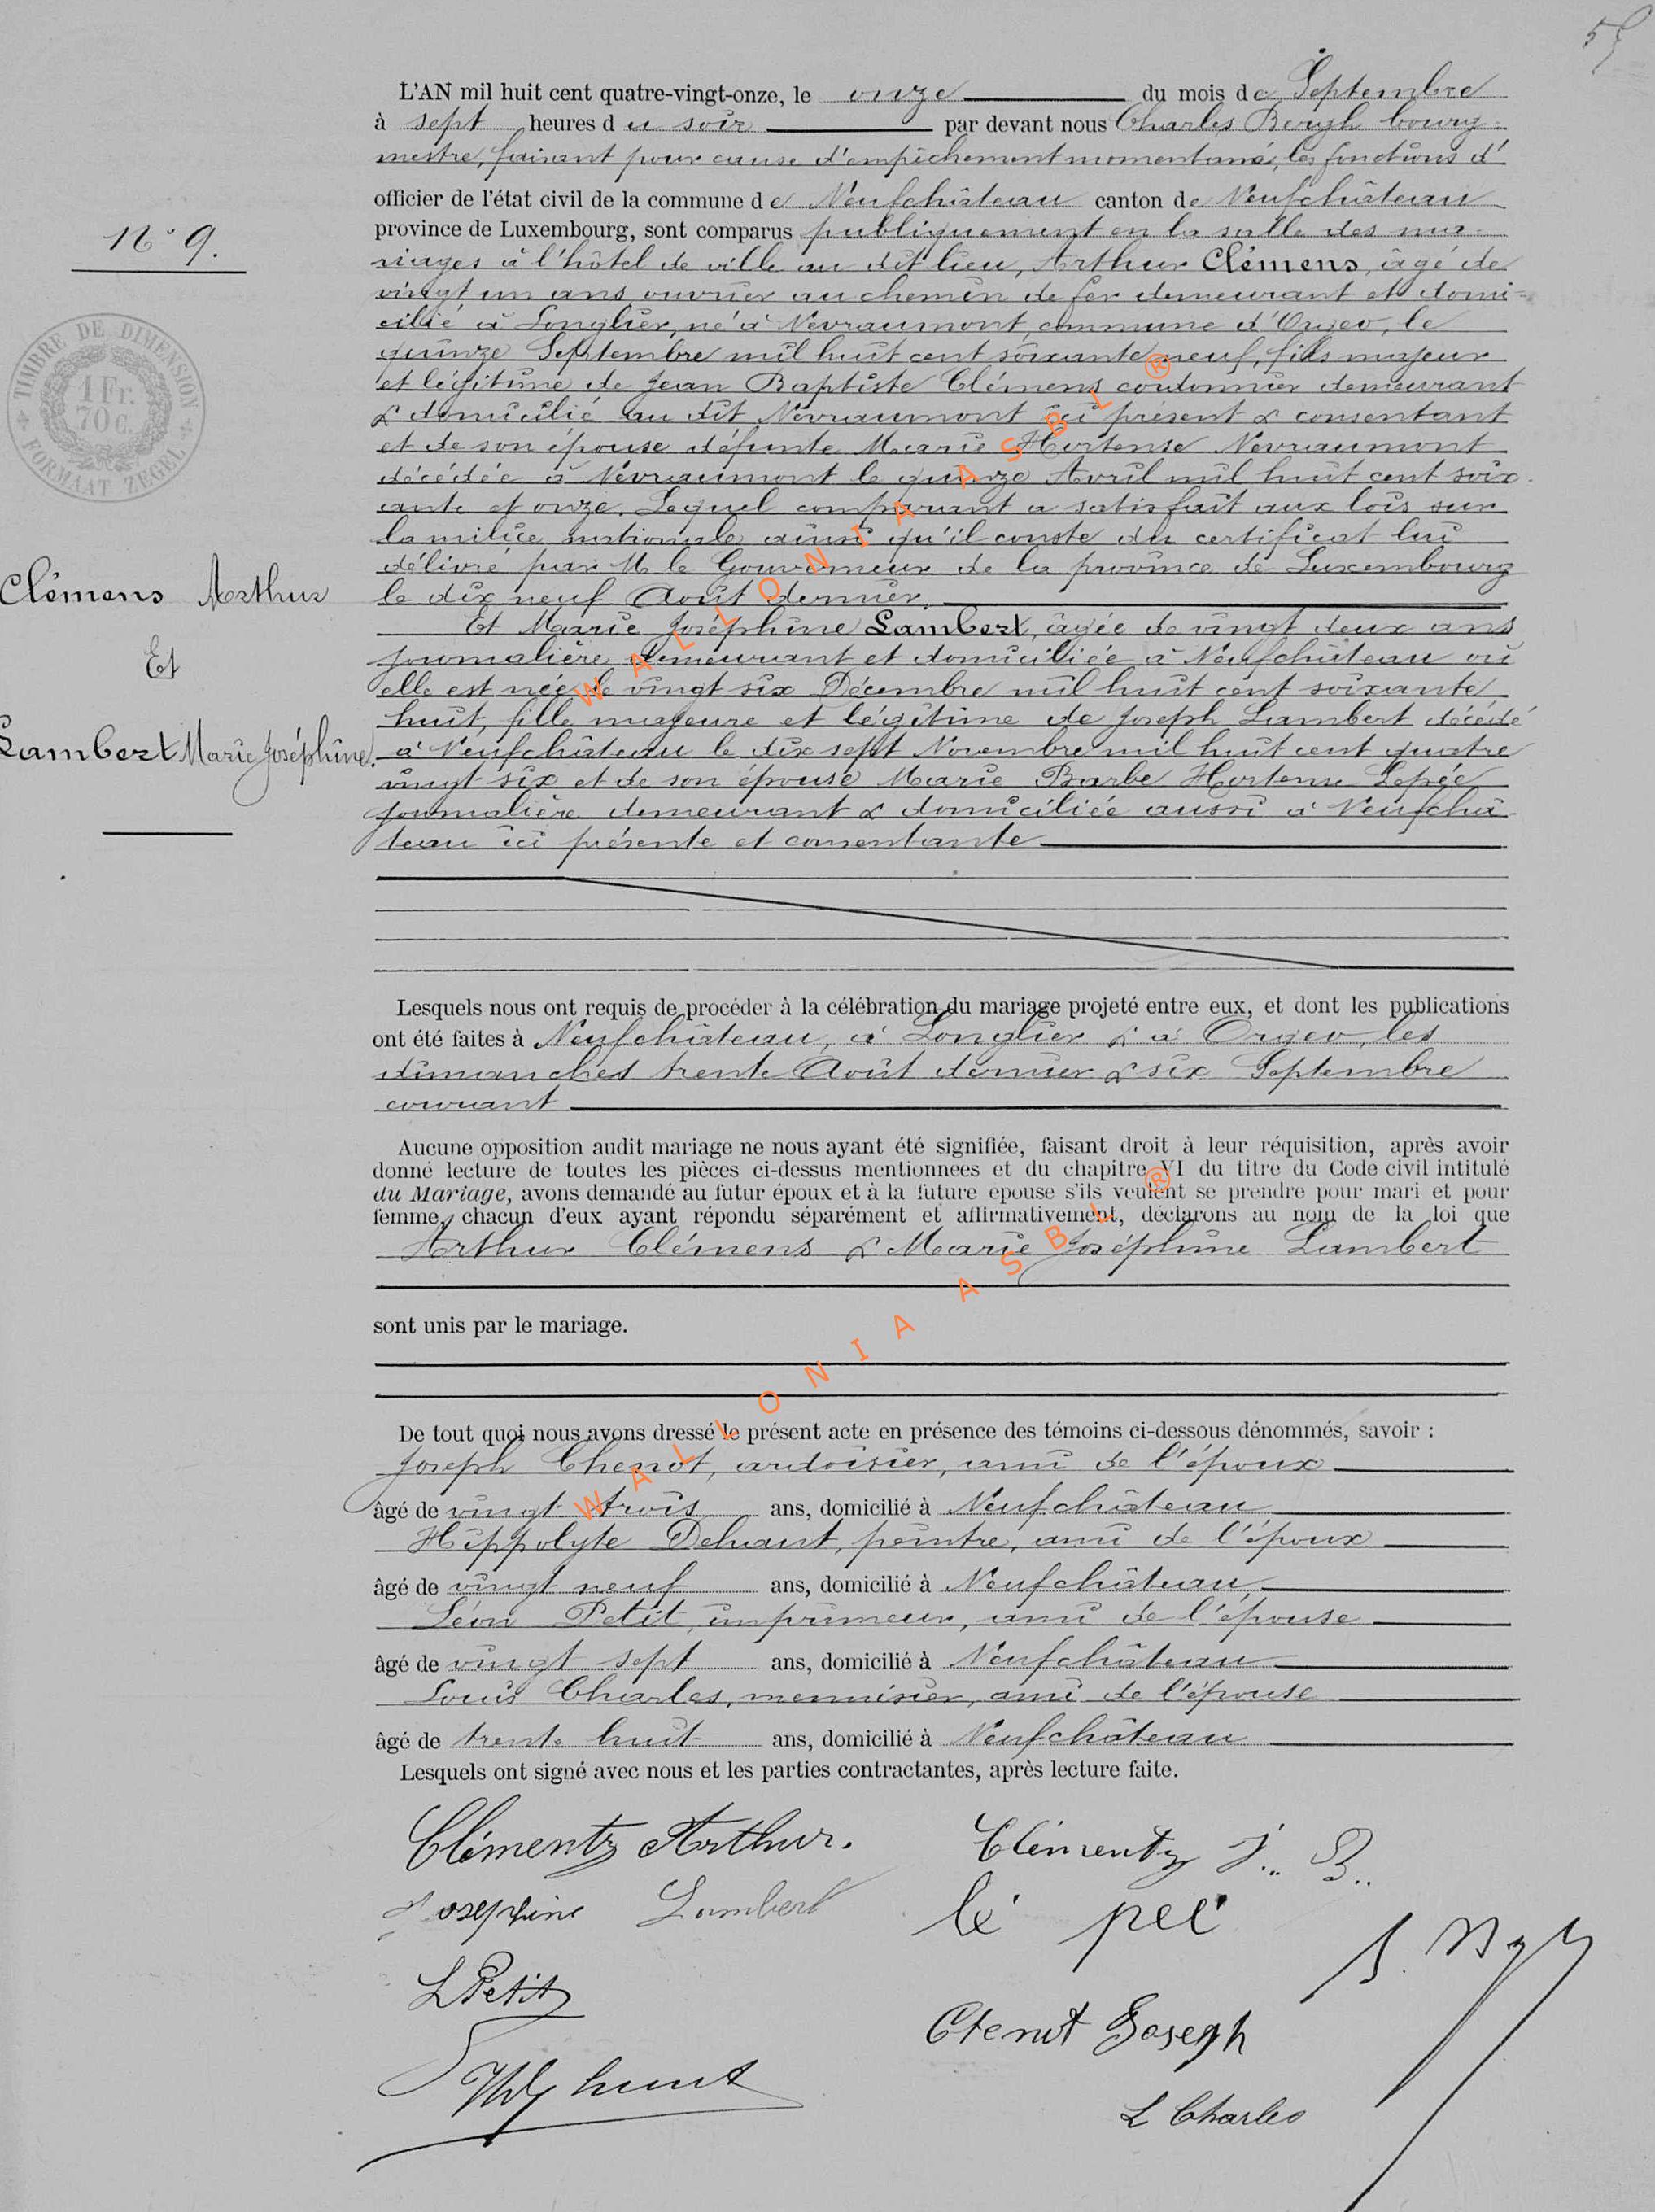 L'AN mil huit cent quatre-vingt-onze, le onze du mois de Septembre
à sept heures du soir par devant nous Charles Bergh bourg-
mestre, faisant pour cause d'empêchement momentané, les fonctions d'
officier de l'état civil de la commune de Neufchâteau canton de Neufchâteau
province de Luxembourg, sont comparus publiquement en la salle des ma-
riages à l'hôtel de ville au dit lieu, Arthur Clémens, âgé de
vingt un ans, ouvrier au chemin de fer demeurant et domi-
cilié à Longlier, né à Nevraumont, commune d'Orgeo, le
quinze Septembre mil huit cent soixante neuf, fils majeur
et légitime de Jean Baptiste Clémens cordonnier demeurant
& domicilié au dit Nevraumont ici présent & consentant
et de son épouse défunte Marie Hortense Nevraumont
décédée à Névraumont le quinze Avril mil huit cent soix-
ante et onze. Lequel comparant a satisfait aux lois sur
la milice nationale ainsi qu'il conste du certificat lui
délivré par M le Gouverneur de la province de Luxembourg
le dix neuf Août dernier.
Et Marie Joséphine Lambert, âgée de vingt deux ans
journalière, demeurant et domiciliée à Neufchâteau où
elle est née le vingt six Décembre mil huit cent soixante
huit, fille majeure et légitime de Joseph Lambert décédé
à Neufchâteau le dix sept Novembre mil huit cent quatre
vingt-six et de son épouse Marie Barbe Hortense Lepée
journalière demeurant & domiciliée aussi à Neufchâ-
teau ici présente et consentante
N° 9.
TIMBRE DE DIMENSION
1 Fr.
70 c.
FORMAAT ZEGEL
Clémens Arthur
Et
Lambert Marie Joséphine.
Lesquels nous ont requis de procéder à la célébration du mariage projeté entre eux, et dont les publications
ont été faites à Neufchâteau, à Longlier & à Orgeo, les
dimanches trente Août dernier & six Septembre
courant
Aucune opposition audit mariage ne nous ayant été signifiée, faisant droit à leur réquisition, après avoir
donné lecture de toutes les pièces ci-dessus mentionnees et du chapitre VI du titre du Code civil intitulé
du Mariage, avons demandé au futur époux et à la future epouse s'ils veulent se prendre pour mari et pour
femme, chacun d'eux ayant répondu séparément et affirmativement, déclarons au nom de la loi que
Arthur Clémens & Marie Joséphine Lambert
sont unis par le mariage.
De tout quoi nous avons dressé le présent acte en présence des témoins ci-dessous dénommés, savoir :
Joseph Chenot, ardoisier, ami de l'époux
âgé de vingt trois ans, domicilié à Neufchâteau
Hippolyte Dehant, peintre, ami de l'époux
âgé de vingt neuf ans, domicilié à Neufchâteau,
Léon Petit, imprimeur, ami de l'épouse
âgé de vingt sept ans, domicilié à Neufchâteau
Louis Charles, menuisier, ami de l'épouse
âgé de trente huit ans, domicilié à Neufchâteau
Lesquels ont signé avec nous et les parties contractantes, après lecture faite.
Clémentz Arthur. Clémentz J. B.
Josephine Lambert lé peé
L Petit
Chenot Joseph
L Charles
WALLONIA ASBL ®
WALLONIA ASBL ®